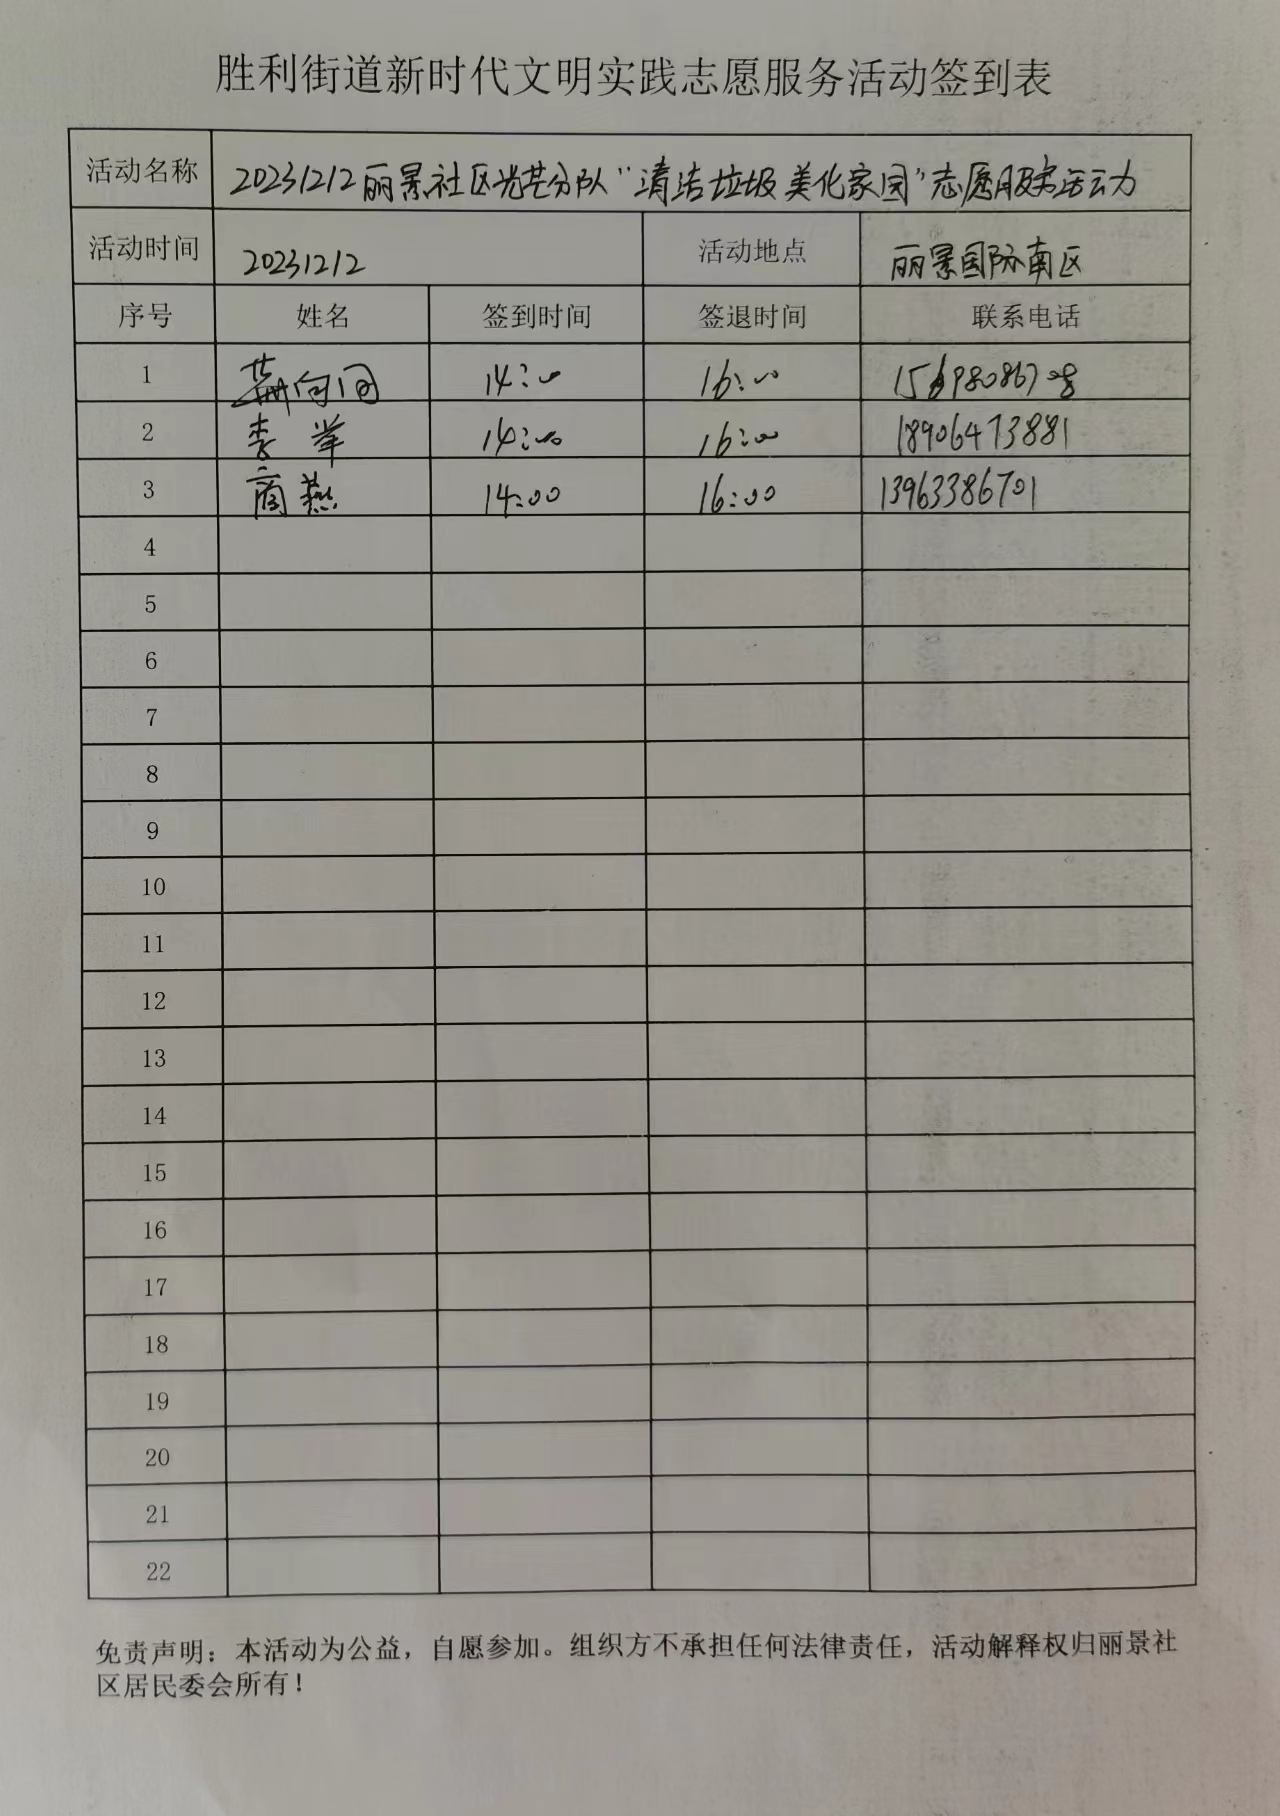 胜利街道新时代文明实践志愿服务活动签到表
活动名称 20231212丽景社区光芒分队“清洁垃圾美化家园”志愿服务活动
活动时间 20231212 活动地点 丽景国际南区
序号 姓名 签到时间 签退时间 联系电话
1 14:00 16:00
2 李举 14:00 16:00 18906473881
3 商燕 14:00 16:00 13963386701
4
5
6
7
8
9
10
11
12
13
14
15
16
17
18
19
20
21
22
免责声明：本活动为公益，自愿参加。组织方不承担任何法律责任，活动解释权归丽景社
区居民委会所有！